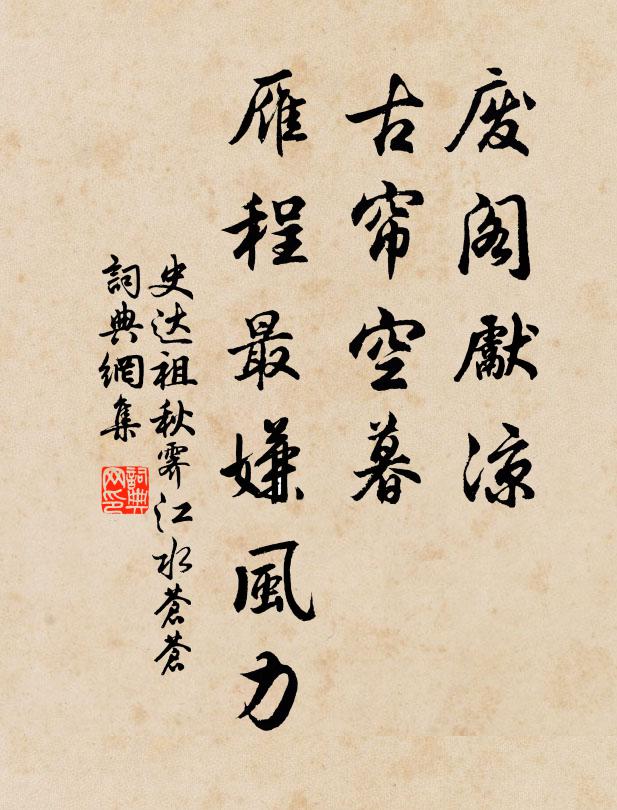 废阁獻涼
古帘空暮
雁程最嫌風力
史达祖秋霁江水蒼蒼
詞典網集
詞典网印